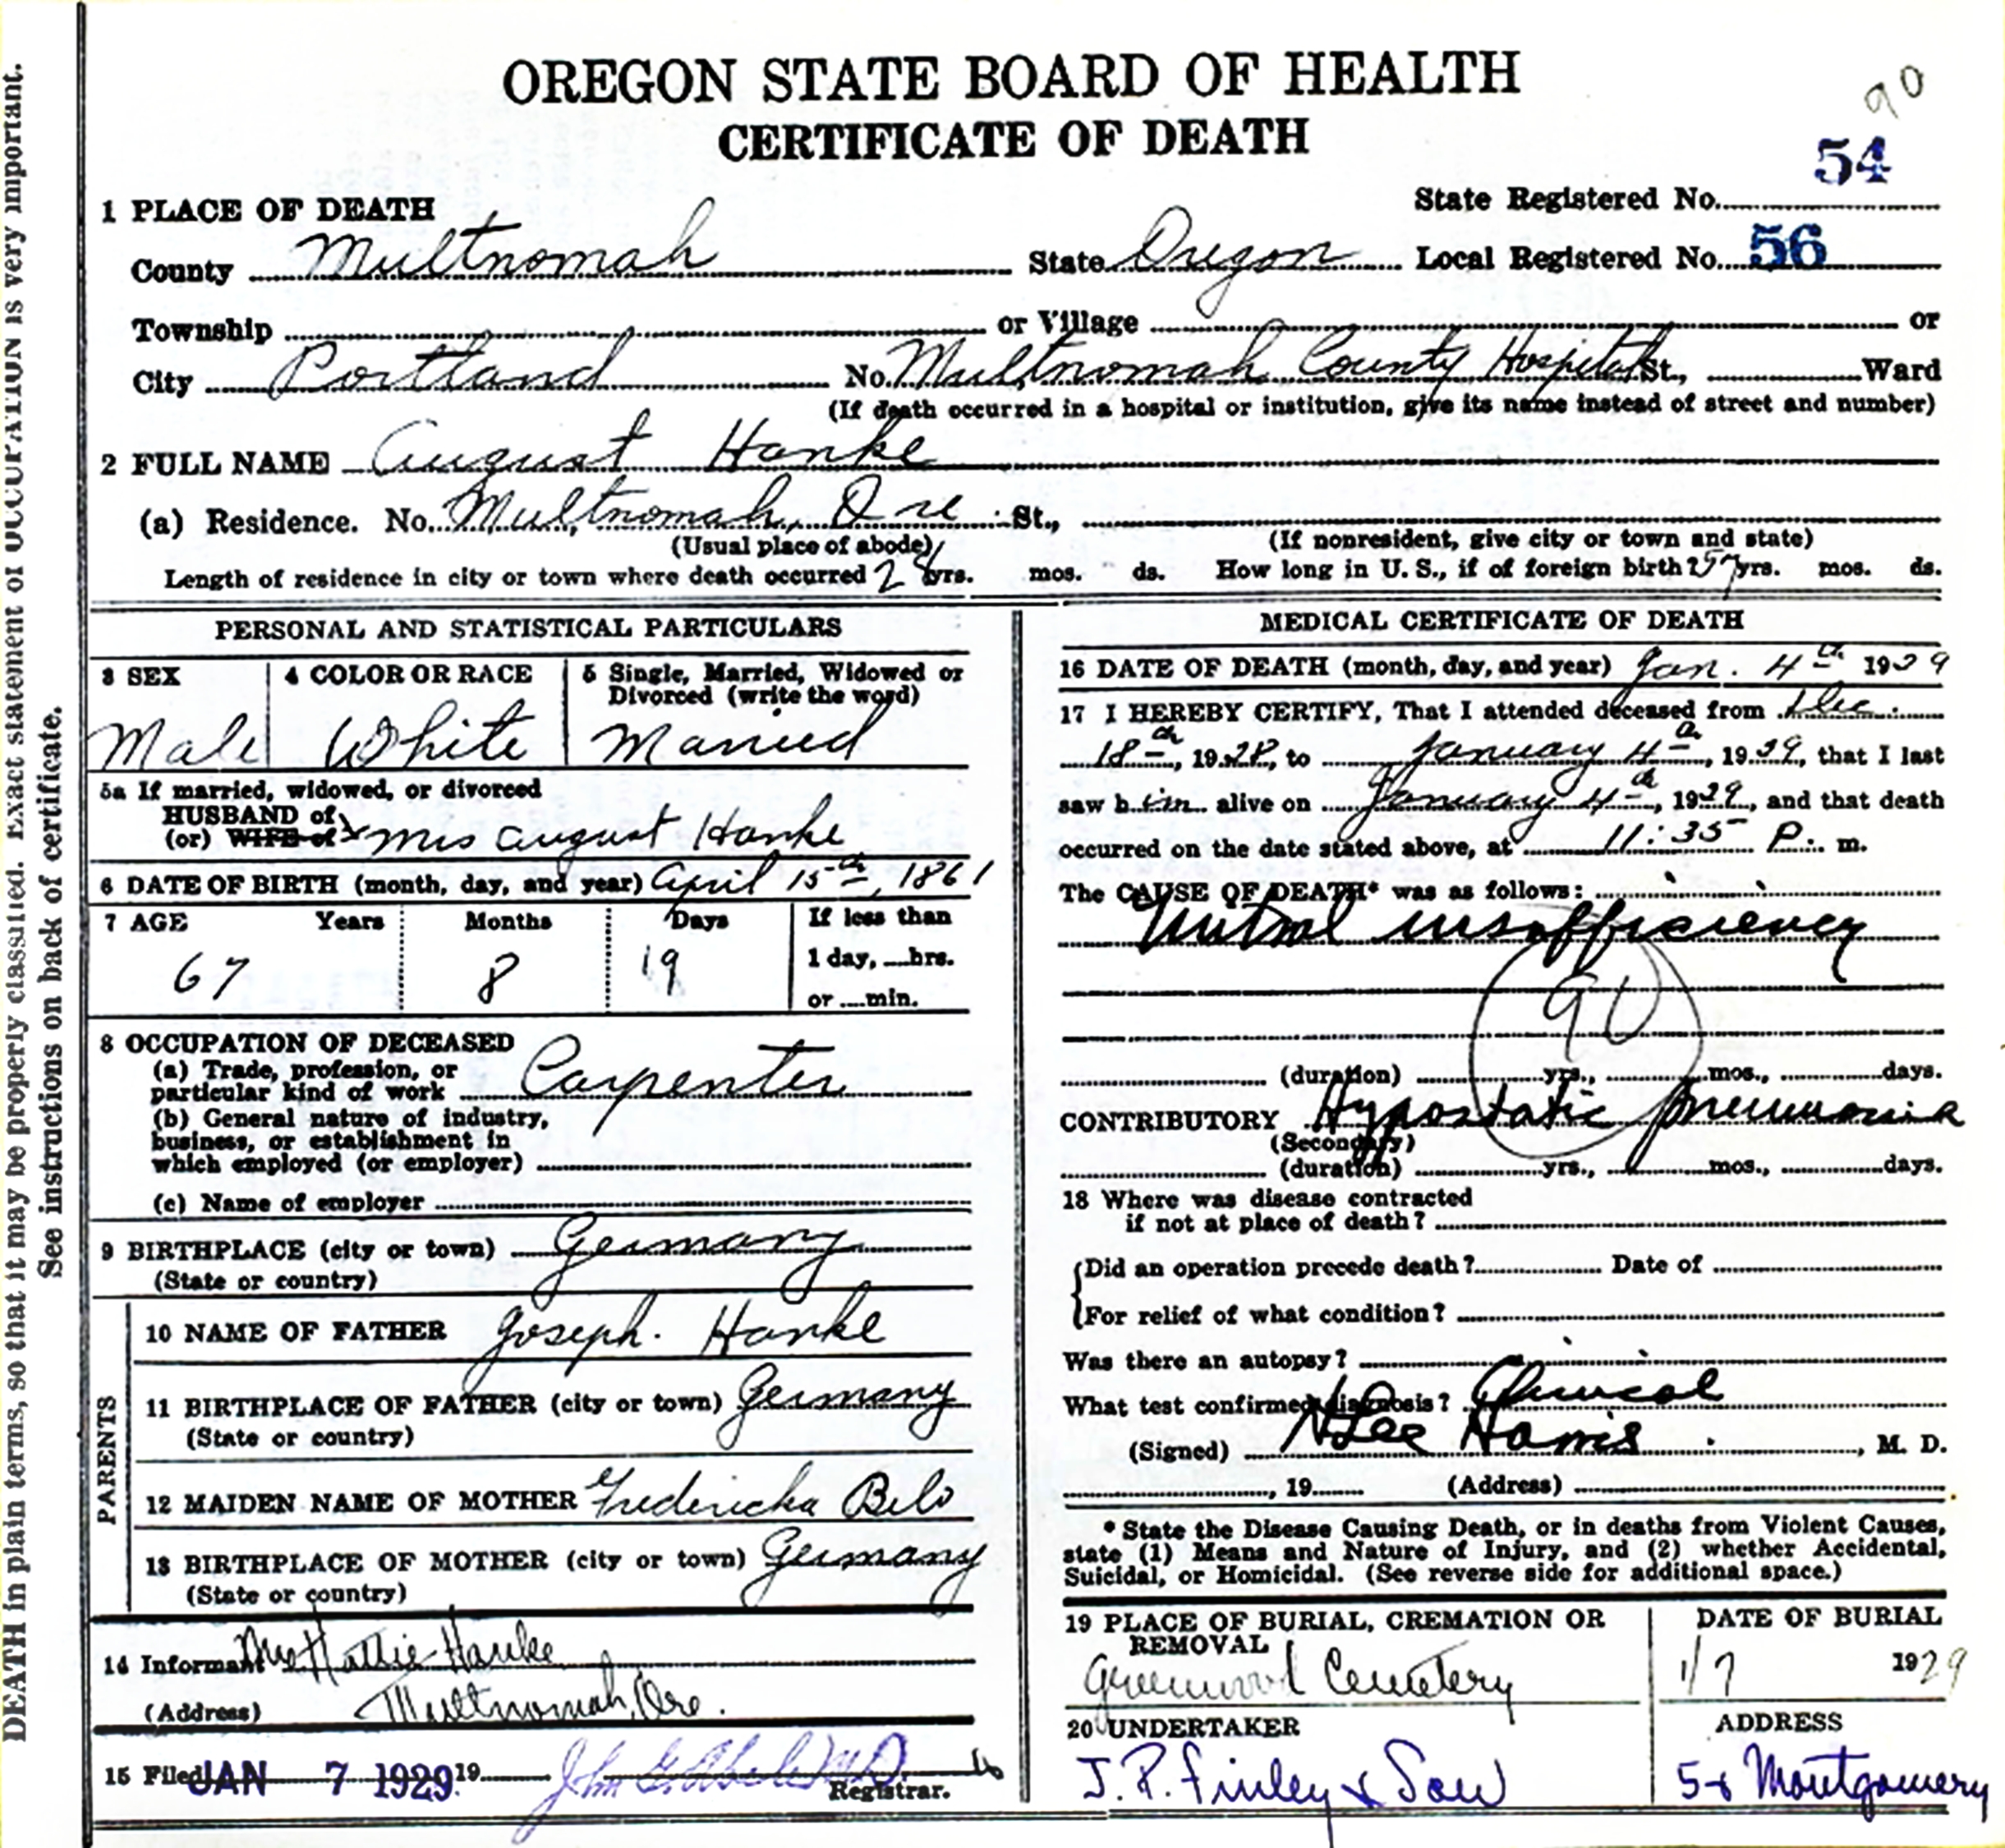 OREGON STATE BOARD OF HEALTH
CERTIFICATE OF DEATH
90
54
State Registered No.
1 PLACE OF DEATH
County Multnomah State Oregon Local Registered No. 56
Township or Village or
City Portland No. Multnomah County Hospital St., Ward
(If death occurred in a hospital or institution, give its name instead of street and number)
2 FULL NAME August Hanke
(a) Residence. No. Multnomah, Ore St.,
(Usual place of abode) (If nonresident, give city or town and state)
Length of residence in city or town where death occurred 28 yrs. mos. ds. How long in U. S., if of foreign birth? 57 yrs. mos. ds.
PERSONAL AND STATISTICAL PARTICULARS
3 SEX 4 COLOR OR RACE 5 Single, Married, Widowed or
Divorced (write the word)
Male White Married
5a If married, widowed, or divorced
HUSBAND of
(or) WIFE of Mrs August Hanke
6 DATE OF BIRTH (month, day, and year) April 15th, 1861
7 AGE Years Months Days If less than
1 day, hrs.
67 8 19
or min.
8 OCCUPATION OF DECEASED
(a) Trade, profession, or
particular kind of work Carpenter
(b) General nature of industry,
business, or establishment in
which employed (or employer)
(c) Name of employer
9 BIRTHPLACE (city or town) Germany
(State or country)
PARENTS
10 NAME OF FATHER Joseph. Hanke
11 BIRTHPLACE OF FATHER (city or town) Germany
(State or country)
12 MAIDEN NAME OF MOTHER Fredericka
13 BIRTHPLACE OF MOTHER (city or town) Germany
(State or country)
14 Informant Mrs Hattie Hanke
(Address) Multnomah, Ore.
15 Filed JAN 7 1929 19 John G. Abele MD
Registrar.
MEDICAL CERTIFICATE OF DEATH
16 DATE OF DEATH (month, day, and year) Jan. 4th 1929
17 I HEREBY CERTIFY, That I attended deceased from Dec.
18th, 1928, to January 4th, 1929, that I last
saw him alive on January 4th, 1929, and that death
occurred on the date stated above, at 11:35 P. m.
The CAUSE OF DEATH* was as follows:
Mitral insufficiency
90
(duration) yrs., mos., days.
CONTRIBUTORY Hypostatic pneumonia
(Secondary)
(duration) yrs., mos., days.
18 Where was disease contracted
if not at place of death?
Did an operation precede death? Date of
For relief of what condition?
Was there an autopsy?
What test confirmed diagnosis? Clinical
(Signed) Lee Harris, M. D.
, 19 (Address)
* State the Disease Causing Death, or in deaths from Violent Causes,
state (1) Means and Nature of Injury, and (2) whether Accidental,
Suicidal, or Homicidal. (See reverse side for additional space.)
19 PLACE OF BURIAL, CREMATION OR
REMOVAL
Greenwood Cemetery
DATE OF BURIAL
1/7 1929
20 UNDERTAKER
J. P. Finley & Son
ADDRESS
Montgomery
DEATH in plain terms, so that it may be properly classified. Exact statement of OCCUPATION is very important.
See instructions on back of certificate.